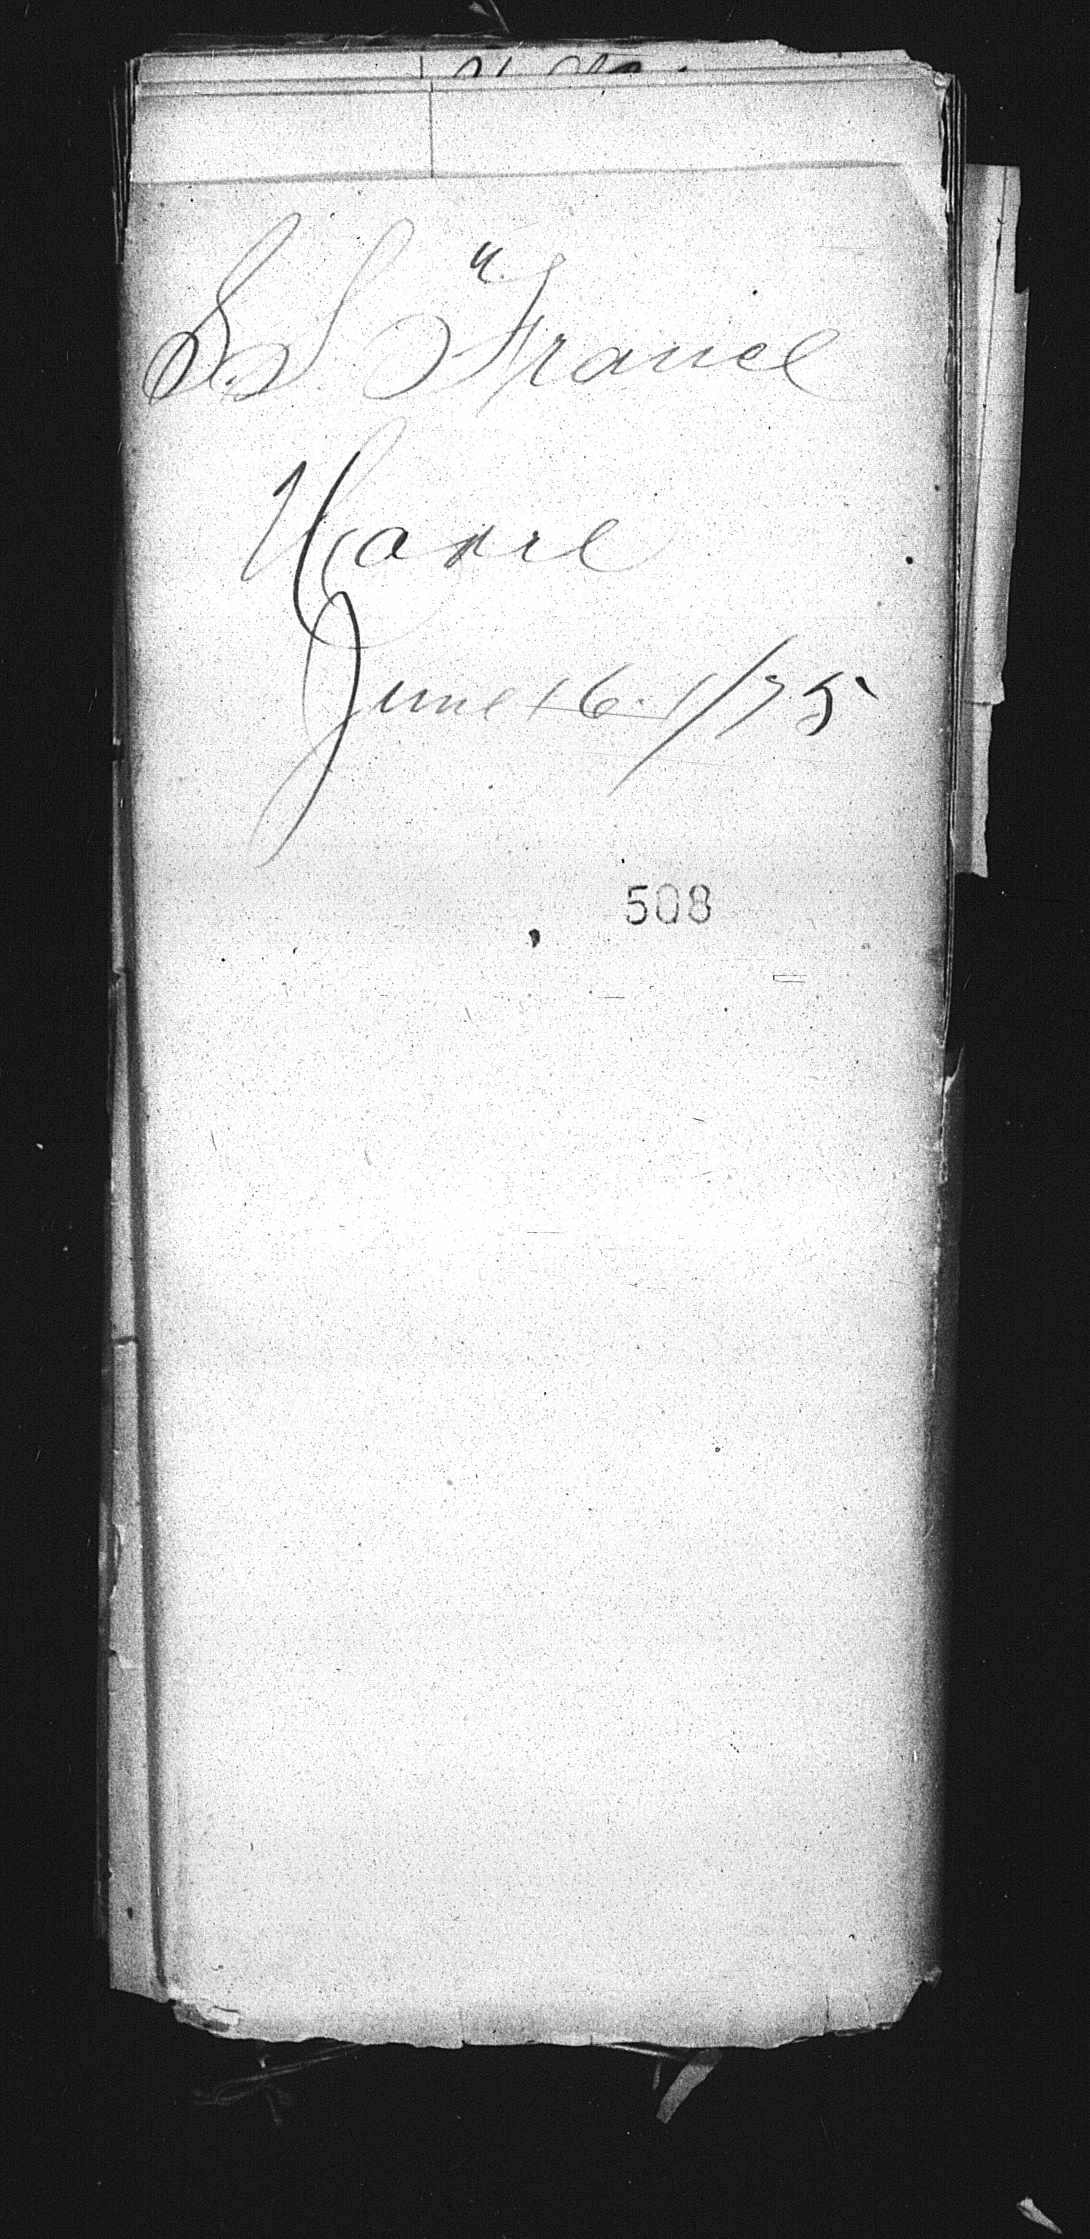 S.S. "France
Havre
June 16. 1/75
508